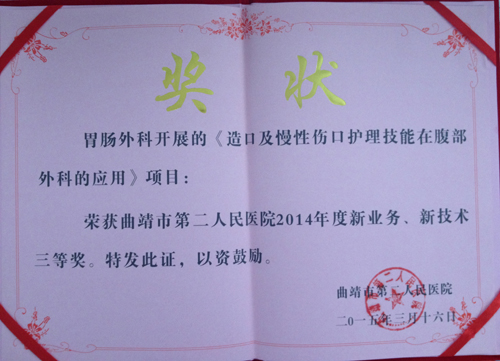 奖状
胃肠外科开展的《造口及慢性伤口护理技能在腹部
外科的应用》项目：
荣获曲靖市第二人民医院2014年度新业务、新技术
三等奖。特发此证，以资鼓励。
曲靖市第二人民医院
二〇一五年三月十六日